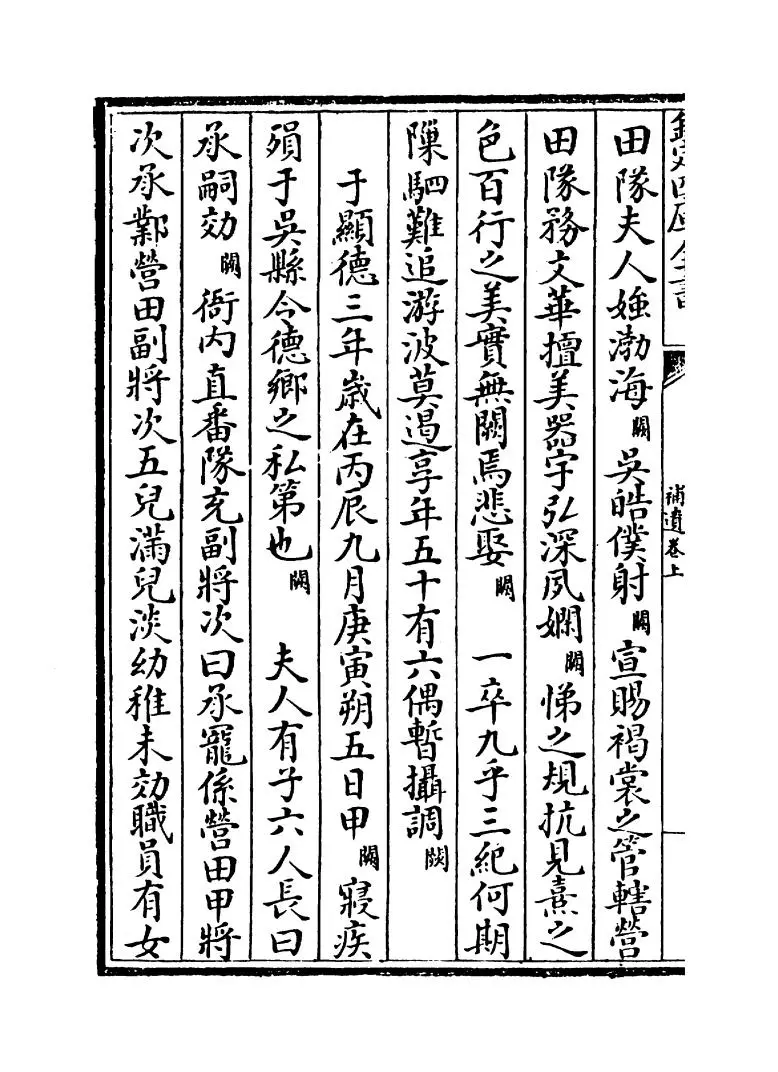 欽定四庫全書
補遺卷上
田隊夫人嫄渤海闕吳皓僕射闕宣賜褐裳之管轄營
田隊務文華擅美器宇弘深夙嫻闕悌之規抗見熹之
色百行之美實無闕焉悲娶闕一卒九乎三紀何期
隟駟難追游波莫遏享年五十有六偶暫攝調闕
于顯德三年歲在丙辰九月庚寅朔五日甲闕寢疾
殞于吳縣令德鄉之私第也闕夫人有子六人長曰
承嗣効闕衙内直番隊充副將次曰承寵係營田甲將
次承鄴營田副將次五兒滿兒淡幼稚未効職員有女